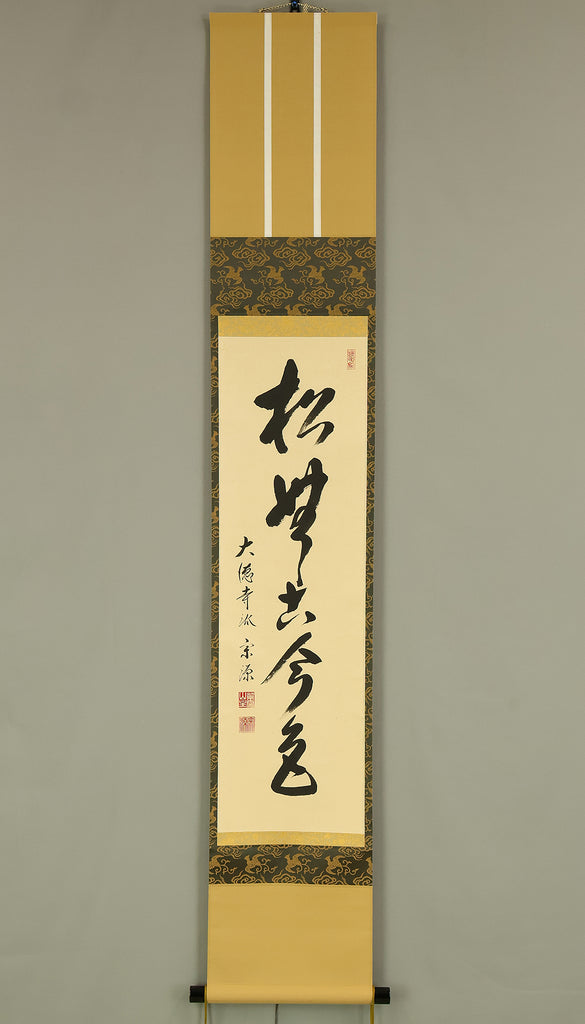 松無古今色
大徳寺派 宗源